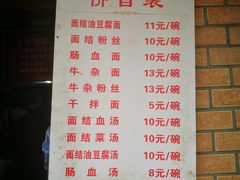 价目表
面结油豆腐面 11元/碗
面结粉丝 10元/碗
肠血面 10元/碗
牛杂面 13元/碗
牛杂粉丝 13元/碗
干拌面 5元/碗
面结血汤 10元/碗
面结菜汤 10元/碗
面结油豆腐汤 10元/碗
肠血汤 8元/碗